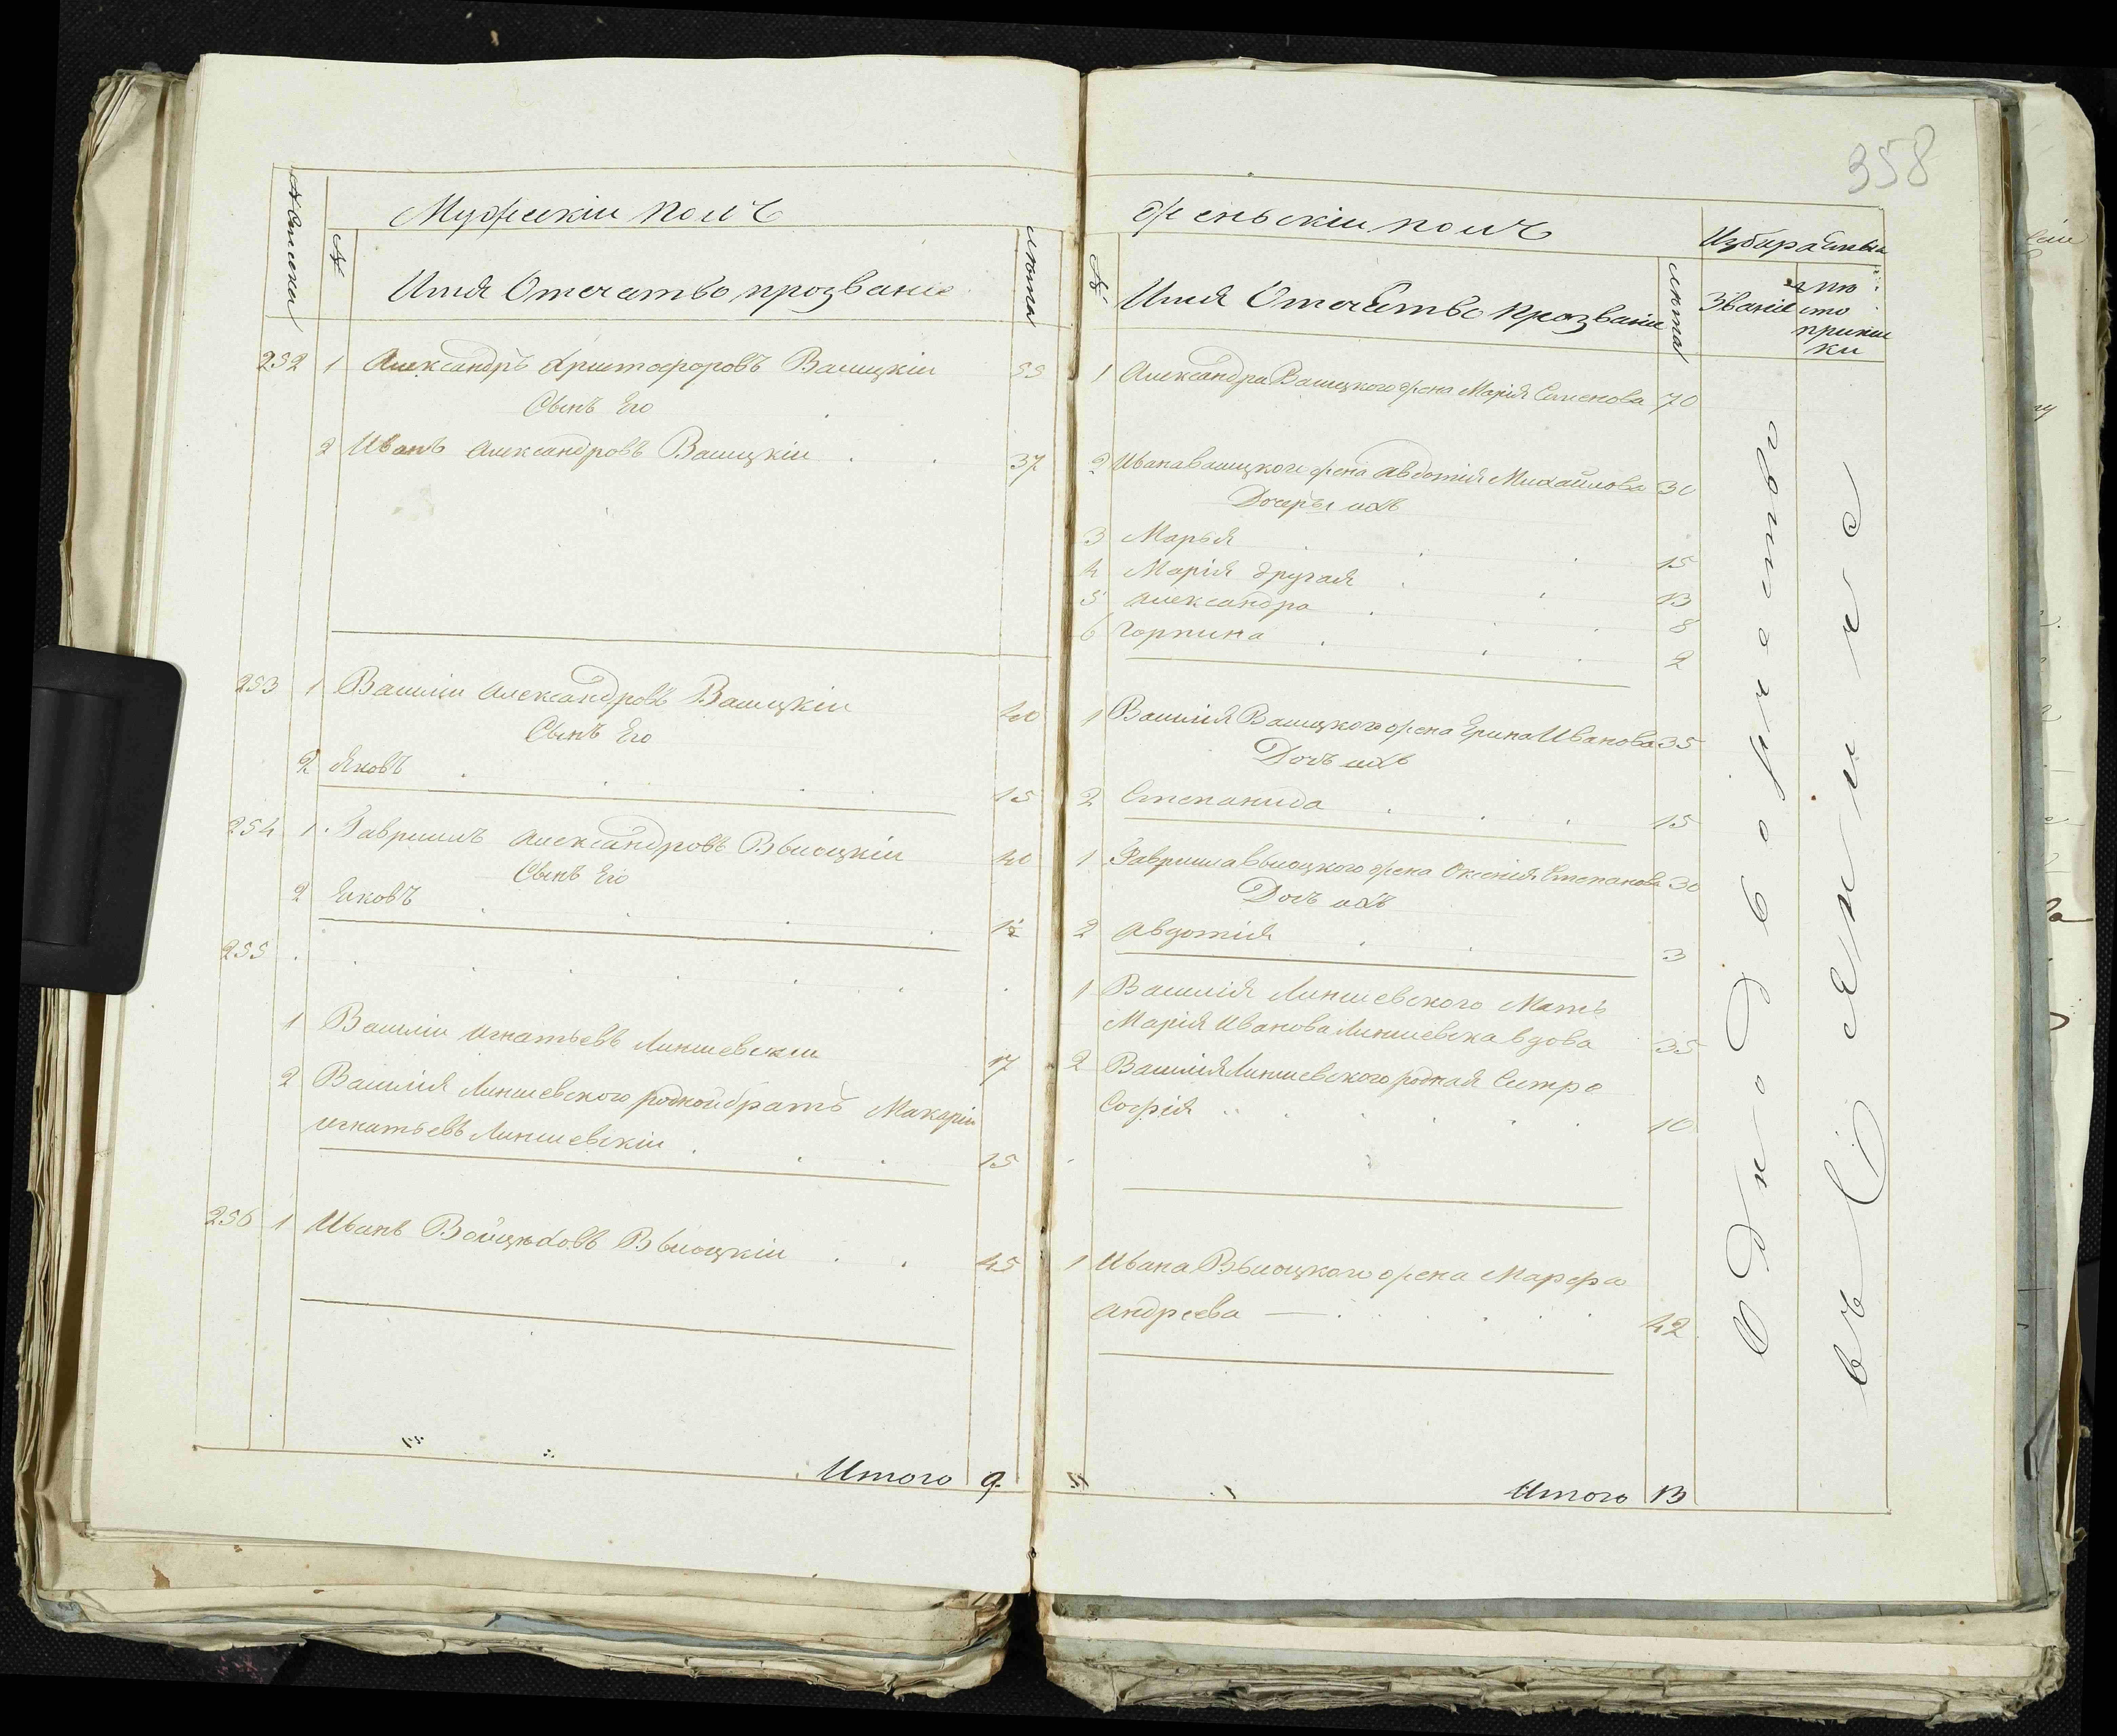 358
Мужескіи полъ
№
Имя Отечатво прозвание
лѣта
252 1 Александръ Христофоровъ Васицкіи 55
Сынъ Его
2 Иванъ Александровъ Васицкіи 37
253 1 Василіи Александровъ Васицкіи 40
Сынъ Его
2 Яковъ 15
254 1 Гавриилъ Александровъ Высоцкіи 40
Сынъ Его
2 Яковъ
255
1 Василіи Игнатьевъ Липшевскіи 17
2 Василія Липшевского родной братъ Макаріи
игнатьевъ Липшевскіи 15
256 1 Иванъ Войцѣховъ Высоцкіи 45
Итого 9
женьскіи полъ
№
Имя Отечетво прозваніе
лѣта
Званіе
1 Александра Васицкого жена Марія Семенова 70
2 Ивана васицкого жена Авдотія Михайлова 30
Дочеры ихъ
3 Марья 15
4 Марія другая 13
5 Александра 8
6 Горпина 2
1 Василія Васицкого жена Ерина Иванова 35
Дочъ ихъ
2 Степанида 15
1 Гавриила Высоцкого жена Оксенія Степанова 30
Дочъ ихъ
2 Авдотія 3
1 Василія Липшевского Мать
Марія Иванова Липшевска вдова 35
2 Василія Липшевского родная Сестра
Софія 10
1 Ивана Высоцкого жена Марфа
Андреева 42
Итого 13
Однодворчетво